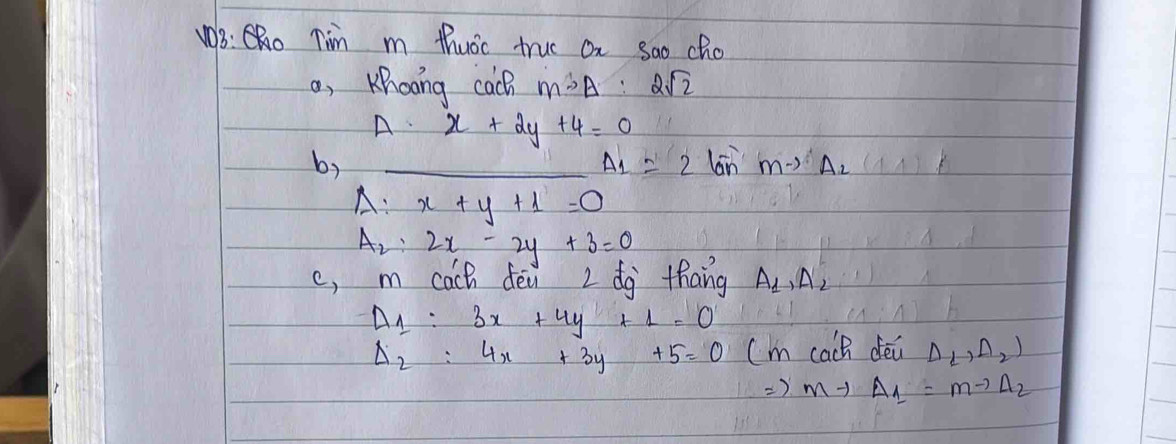 VD3: Cho Tìm m thuộc trục Ox sao cho
a, Khoảng cách m→Δ : 2√2
Δ : x + 2y + 4 = 0
b, ________ Δ1 = 2 lần m→ Δ2
Δ: x + y + 1 = 0
Δ2 : 2x - 2y + 3 = 0
c, m cách đều 2 đg thẳng Δ1, Δ2
Δ1 : 3x + 4y + 1 = 0
Δ2 : 4x + 3y + 5 = 0 (m cách đều Δ1, Δ2)
=> m → Δ1 = m → Δ2